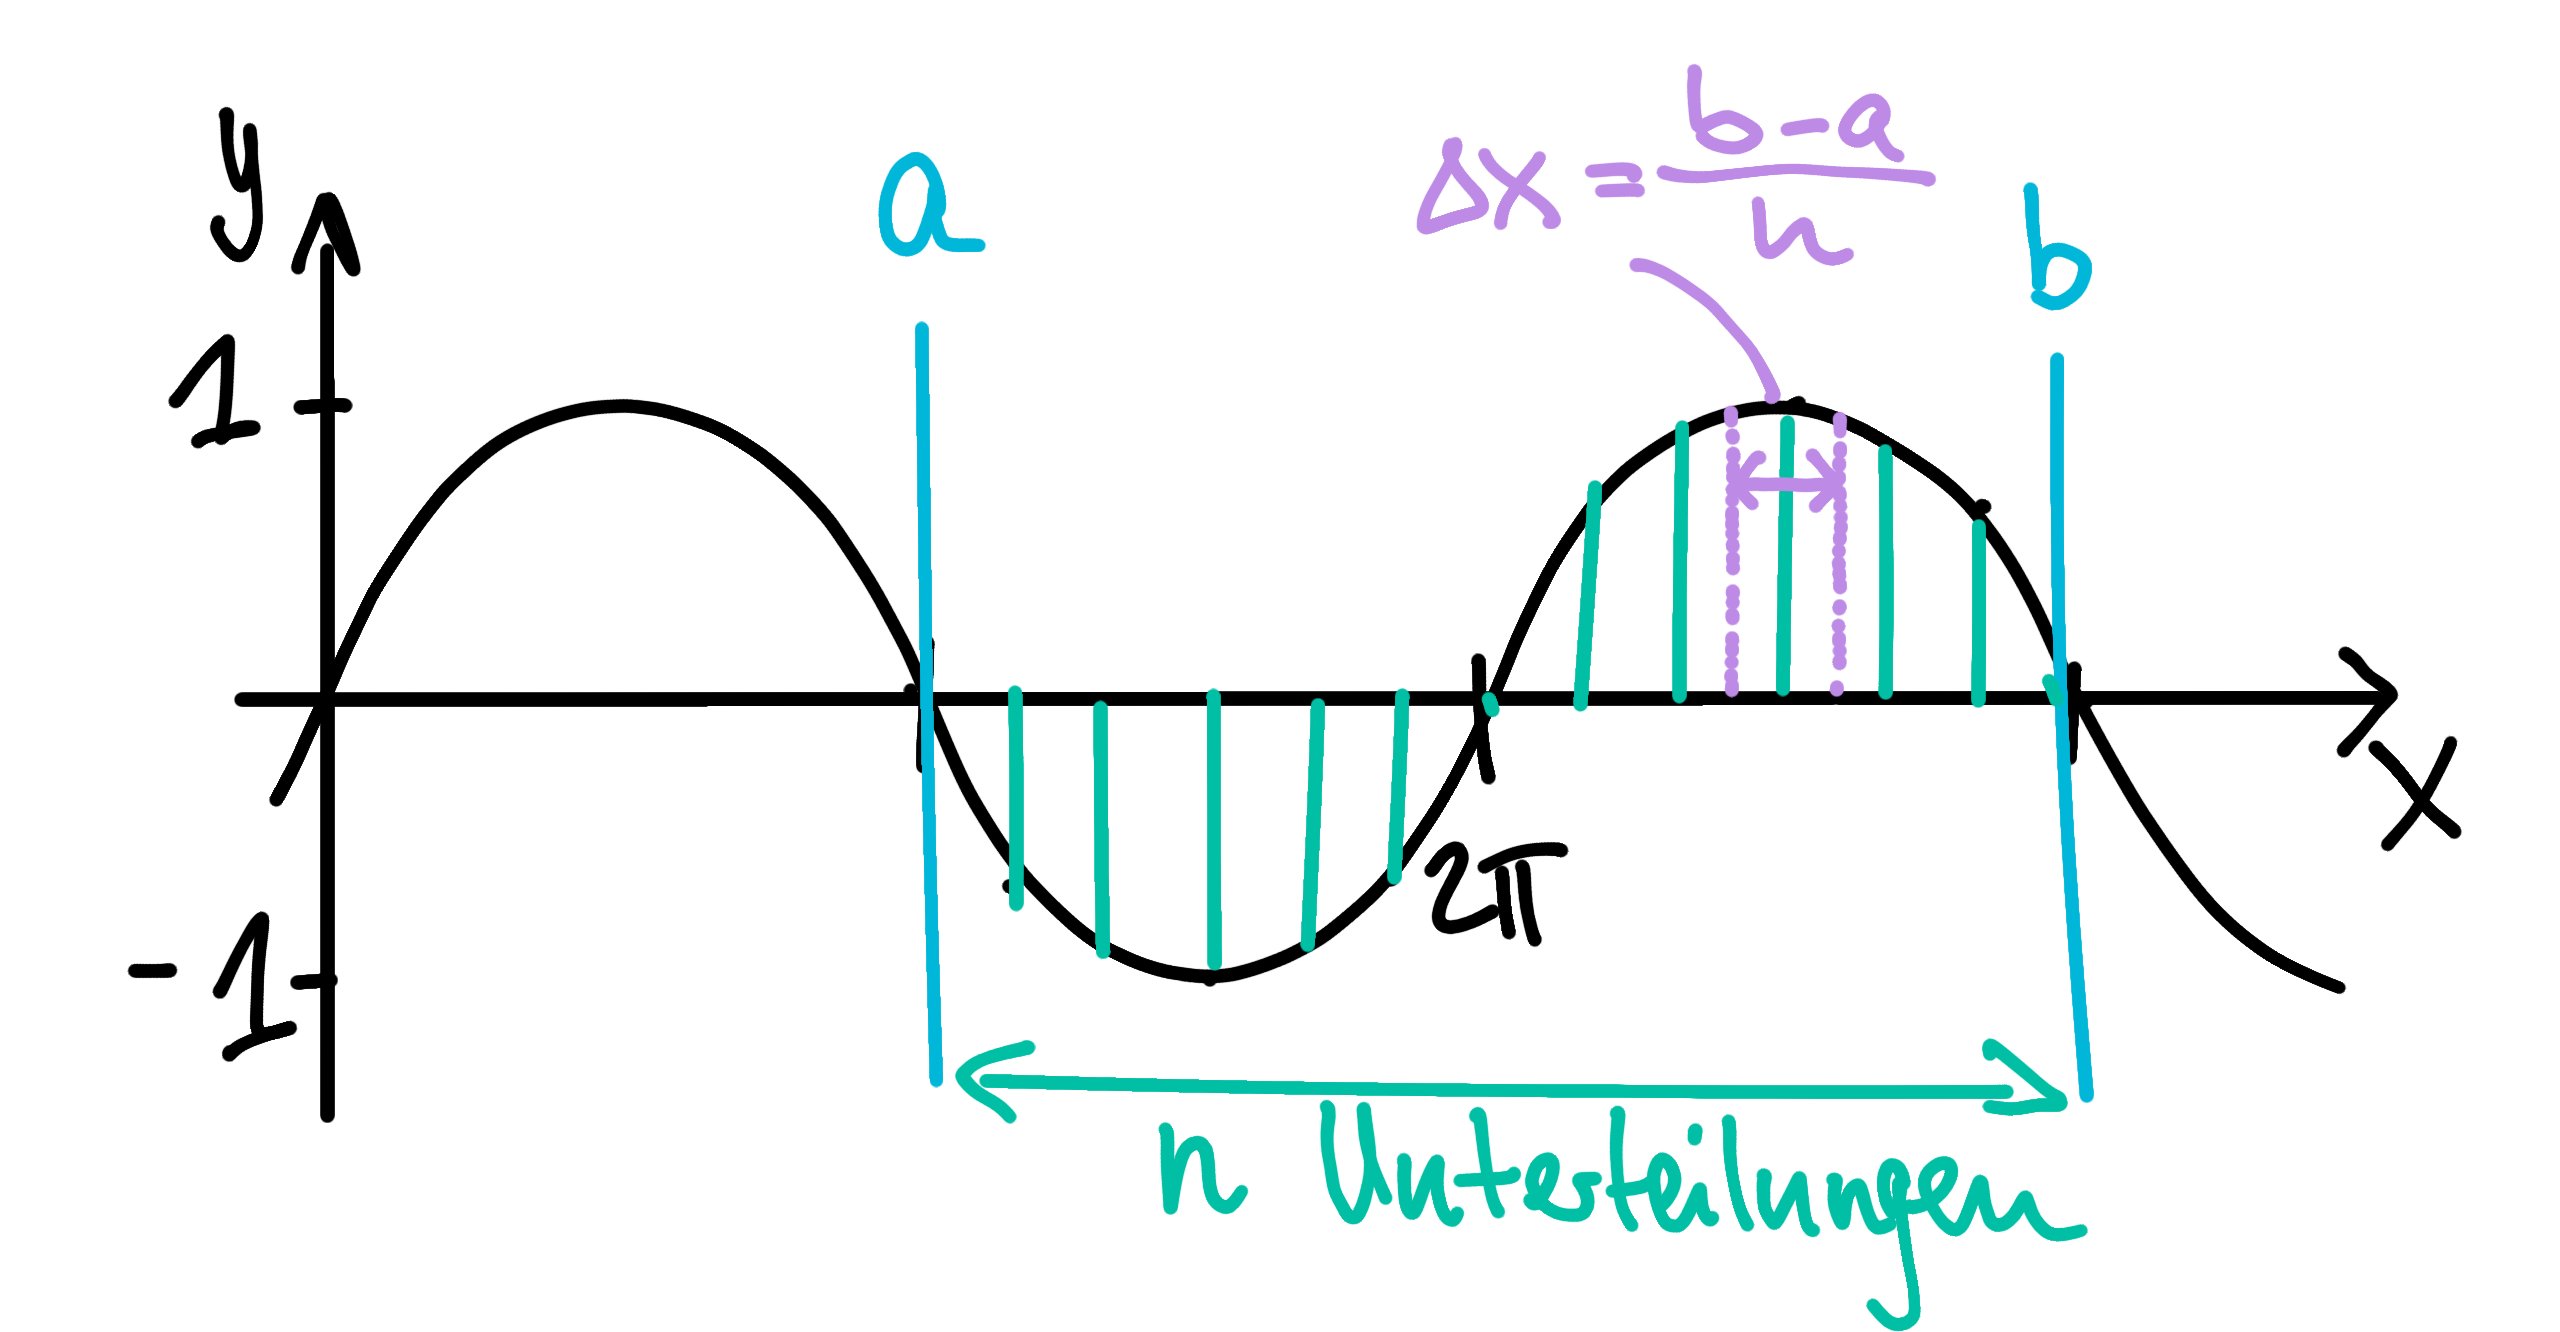 y
1
a
Δx = b-a
n
b
x
2π
-1
n Unterteilungen